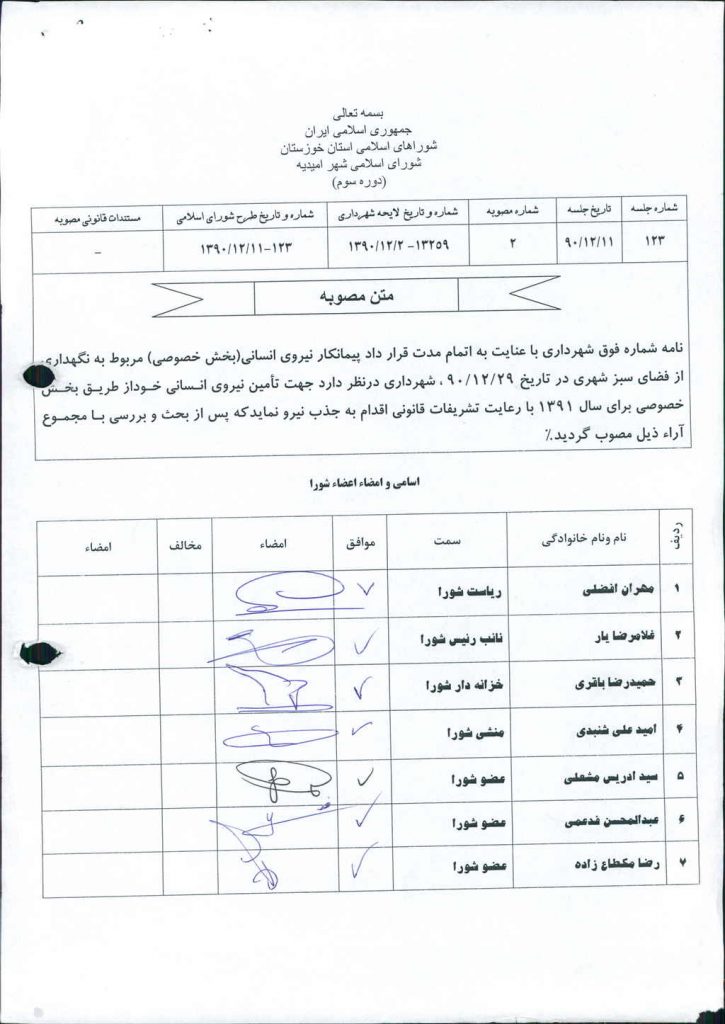 بسمه تعالی
جمهوری اسلامی ایران
شوراهای اسلامی استان خوزستان
شورای اسلامی شهر امیدیه
(دوره سوم)
شماره جلسه تاریخ جلسه شماره مصوبه شماره و تاریخ لایحه شهرداری شماره و تاریخ طرح شورای اسلامی مستندات قانونی مصوبه
۱۲۳ ۹۰/۱۲/۱۱ ۲ ۱۳۲۵۹- ۱۳۹۰/۱۲/۲ ۱۲۳-۱۳۹۰/۱۲/۱۱ -
متن مصوبه
نامه شماره فوق شهرداری با عنایت به اتمام مدت قرار داد پیمانکار نیروی انسانی(بخش خصوصی) مربوط به نگهداری
از فضای سبز شهری در تاریخ ۹۰/۱۲/۲۹ ، شهرداری درنظر دارد جهت تأمین نیروی انسانی خوداز طریق بخش
خصوصی برای سال ۱۳۹۱ با رعایت تشریفات قانونی اقدام به جذب نیرو نمایدکه پس از بحث و بررسی با مجموع
آراء ذیل مصوب گردید.٪
اسامی و امضاء اعضاء شورا
ردیف نام ونام خانوادگی سمت موافق امضاء مخالف امضاء
۱ مهران افضلی ریاست شورا ✓
۲ غلامرضا یار نائب رئیس شورا ✓
۳ حمیدرضا باقری خزانه دار شورا ✓
۴ امید علی شنبدی منشی شورا ✓
۵ سید ادریس مشعلی عضو شورا ✓
۶ عبدالمحسن فدعمی عضو شورا ✓
۷ رضا مکطاع زاده عضو شورا ✓